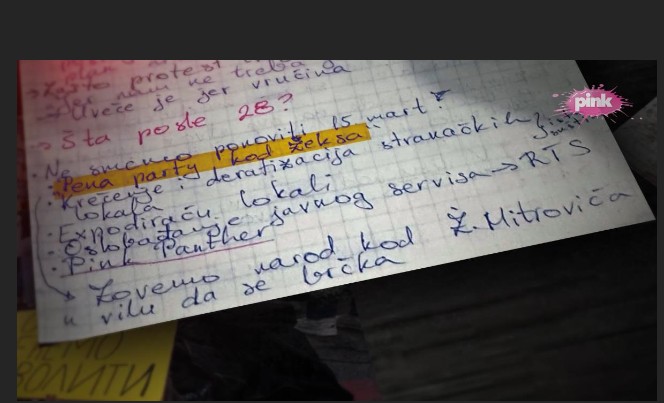 zašto protest
ne treba
Uveče je jer vrućina
Šta posle 28?
• Ne smemo ponoviti 15 mart!
• Pena party kod Žeksa
• Krečenje i deratizacija stranačkih
lokala
• Expodiraću lokali
• Oslobađanje javnog servisa → RTS
• Pink Panther
Zovemo narod kod Ž. Mitrovića
u vilu da se brčka
pink
ЋЕМО
ВОЛИТИ